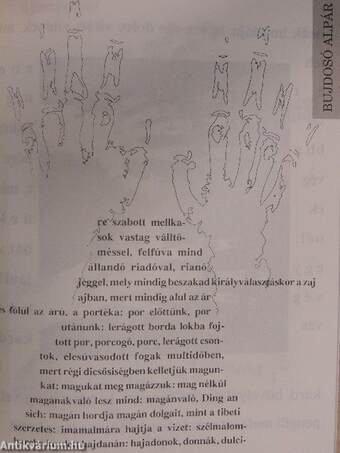 BUJDOSÓ ALPÁR
re szabott mellka-
sok vastag válltö-
méssel, felfúva mind
állandó riadóval, rianó
jéggel, mely mindig beszakad királyválasztáskor a zaj
ajban, mert mindig alul az ár
s fölül az áru, a portéka: por előttünk, por
utánunk: lerágott borda lokba foj-
tott pur, porcogó, porc, lerágott cson-
tok, elesúvasodott fogak multidőben,
mert régi dicsősiségben kelletjük magun-
kat: magukat meg magázzuk: mag nélkül
magánakvaló lesz mind: magánvaló, Ding an
sich: magán hordja magán dolgait, mint a tibeti
szerzetes: imamalmára hajtja a vizet: szélmalom-
hajdanán: hajadonok, donnák, dulci-
antikvarium.hu